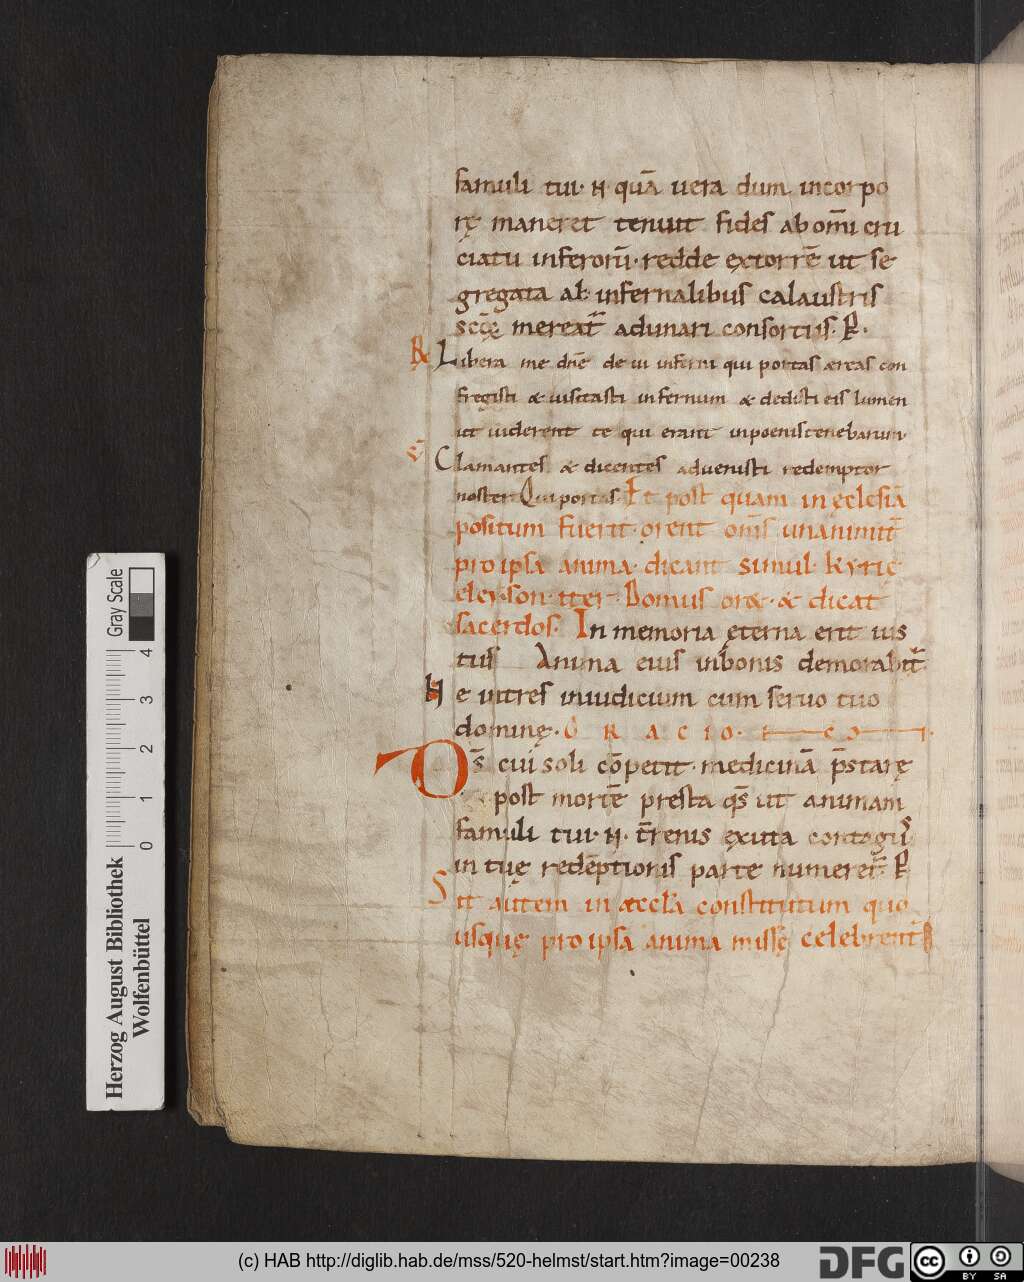 famuli tui· N· quā uera dum incorpo
rę maneret tenuit fides ab om̄i cru
ciatu inferorū· redde extorrē ut se
gregata ab infernalibus calaustris
scōꝝ mereat̄ adunari consortiis· P·
R Libera me dn̄e de ui inferni qui portas æreas con
fregisti & uisitasti infernum & dedisti eis lumen
ut uiderent te qui erant inpoenis tenebarum·
V̄ Clamantes & dicentes aduenisti redemptor
noster Qui portas· Et post quam in ęclesiā
positum fuerit· orent om̄s unanimit̄
pro ipsa anima· dicant simul· Kyrie
eley·son· iter· Domus or& · & dicat
sacerdos· In memoria ęterna erit ius
tus Anima eius inbonis demorabit̄
Ne intres iniudicium cum seruo tuo
dominę· O R A C I O·
Ds̄ cui soli cōpetit· medicinā p̄starę
post mortē presta qs̄ ut animam
famuli tui· N· t̄renis exuta contagiis
in tuę redēptionis parte numeret̄· P
Sit autem in æccl̄a constitutum quo
usquę pro ipsa anima missę celebrent̄
Gray Scale
4 3 2 1 0
Herzog August Bibliothek
Wolfenbüttel
(c) HAB http://diglib.hab.de/mss/520-helmst/start.htm?image=00238
DFG
cc BY SA